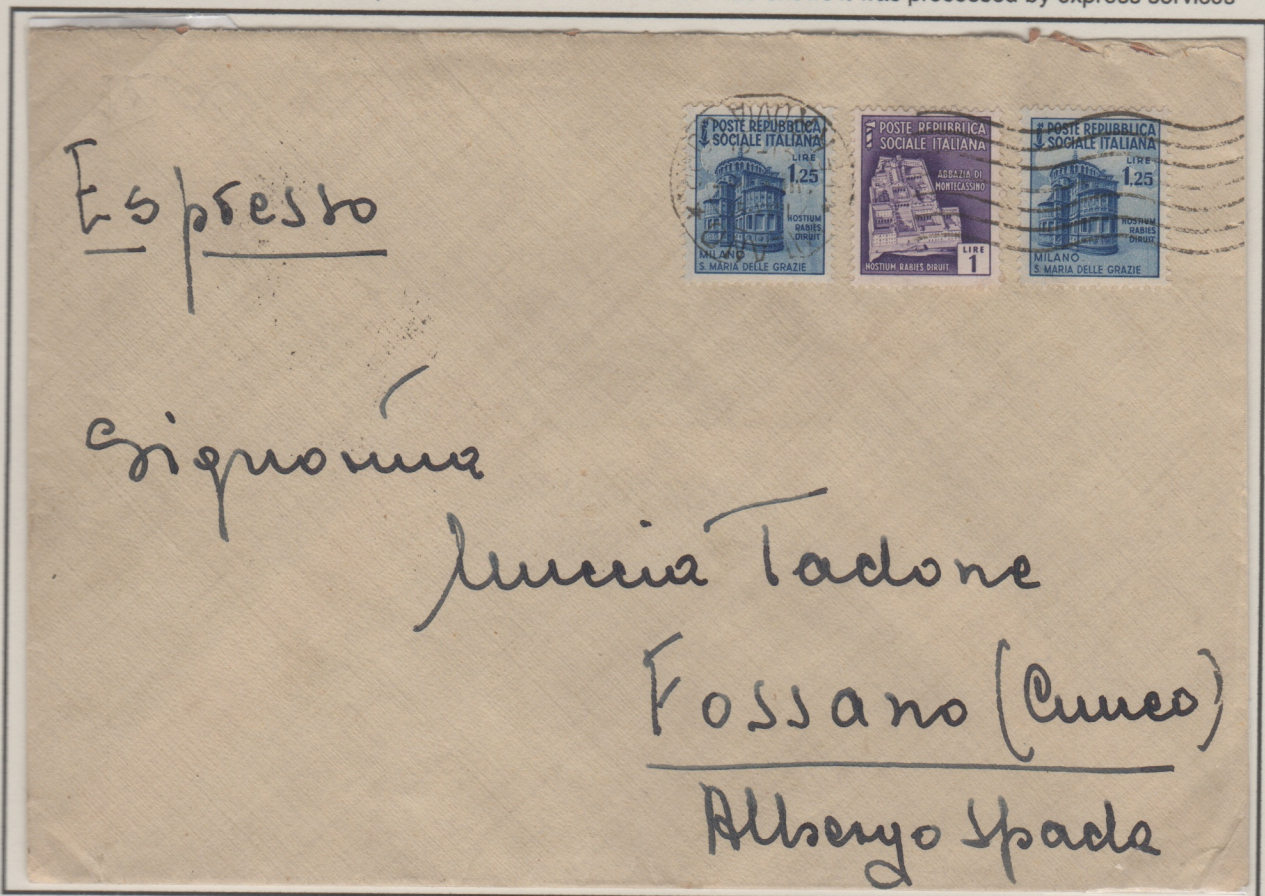 was processed by express services
Espresso
POSTE REPUBBLICA
SOCIALE ITALIANA
LIRE
1,25
HOSTIUM
RABIES
DIRUIT
MILANO
S. MARIA DELLE GRAZIE
POSTE REPUBBLICA
SOCIALE ITALIANA
ABBAZIA DI
MONTECASSINO
HOSTIUM RABIES DIRUIT
LIRE
1
POSTE REPUBBLICA
SOCIALE ITALIANA
LIRE
1,25
HOSTIUM
RABIES
DIRUIT
MILANO
S. MARIA DELLE GRAZIE
Signorina
Tadone
Fossano (Cuneo)
Albergo Spada